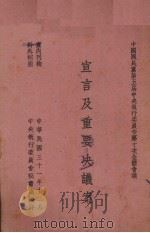 中國國民黨第五屆中央執行委員會第十次全體會議
宣言及重要決議案
黨內刊物
對外秘密
中華民國三十
中央執行委員會秘書